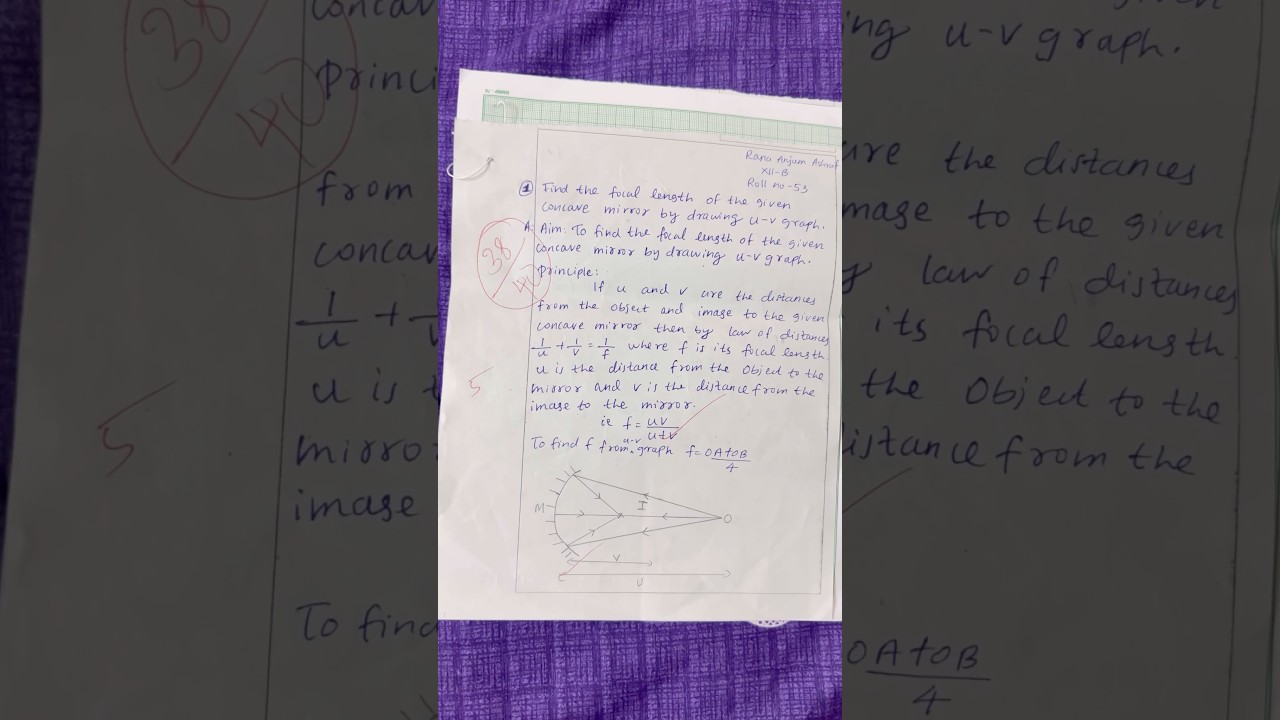 Rana Anjum Ashraf
XII-B
Roll no-53
1 Find the focal length of the given
concave mirror by drawing u-v graph.
A. Aim: To find the focal length of the given
concave mirror by drawing u-v graph.
Principle:
If u and v are the distances
from the object and image to the given
concave mirror then by law of distances
1/u + 1/v = 1/f where f is its focal length
u is the distance from the Object to the
mirror and v is the distance from the
image to the mirror.
ie f = uv/u+v
To find f from u-v graph f = OA+OB/4
38/40
5
M
I
O
V
U